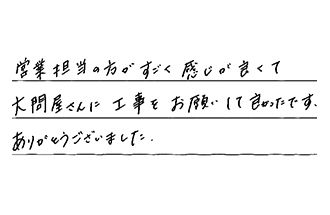 営業担当の方がすごく感じが良くて
大問屋さんに工事をお願いして良かったです.
ありがとうございました.